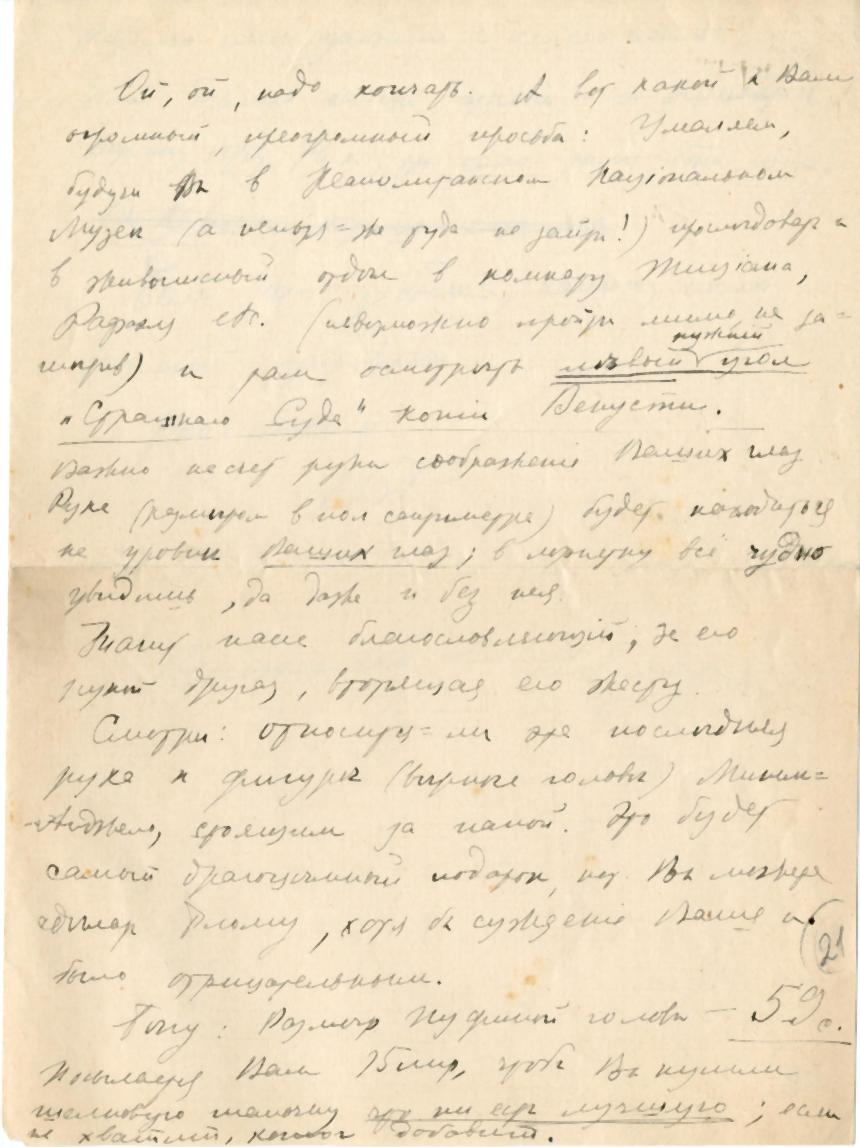 Ой, ой, надо кончать. А вот какой к Вам
огромный, преогромный просьба: Умоляем,
будучи Вы в Неаполитанском Національном
Музеи (а нельзя=же туда не зайти!) промидовать и
в живописный отдел в комнату Тиціана,
Рафаэля etc. (невозможно пройти мимо, не за=
нужній
ширив) и там осмотреть левый угол
"Страшнаго Суда" копіи Венусти.
Важно насчет руки соображеніе Ваших глаз
Рука (размером в пол сантиметра) будет находиться
на уровне Ваших глаз; в лорнетку всё чудно
увидишь, да даже и без нея.
Значит папа благословляющій, за его
рукой другая, вторящая его жесту.
Смотри: относится=ли эта последняя
рука к фигуре (вернее голове) Микель=
-Анджело, стоящим за папой. Это будет
самый драгоценный подарок, кот. Вы можете
сделать Тлому, хотя бы сужденіе Ваше и
было отрицательным.
21
Тону: Размер Пуфиной головы — 59 с.
Посылается Вам 75 лир, чтобы Вы купили
шелковую шапочку что ни есть лучшую; если
не хватит, добавит.